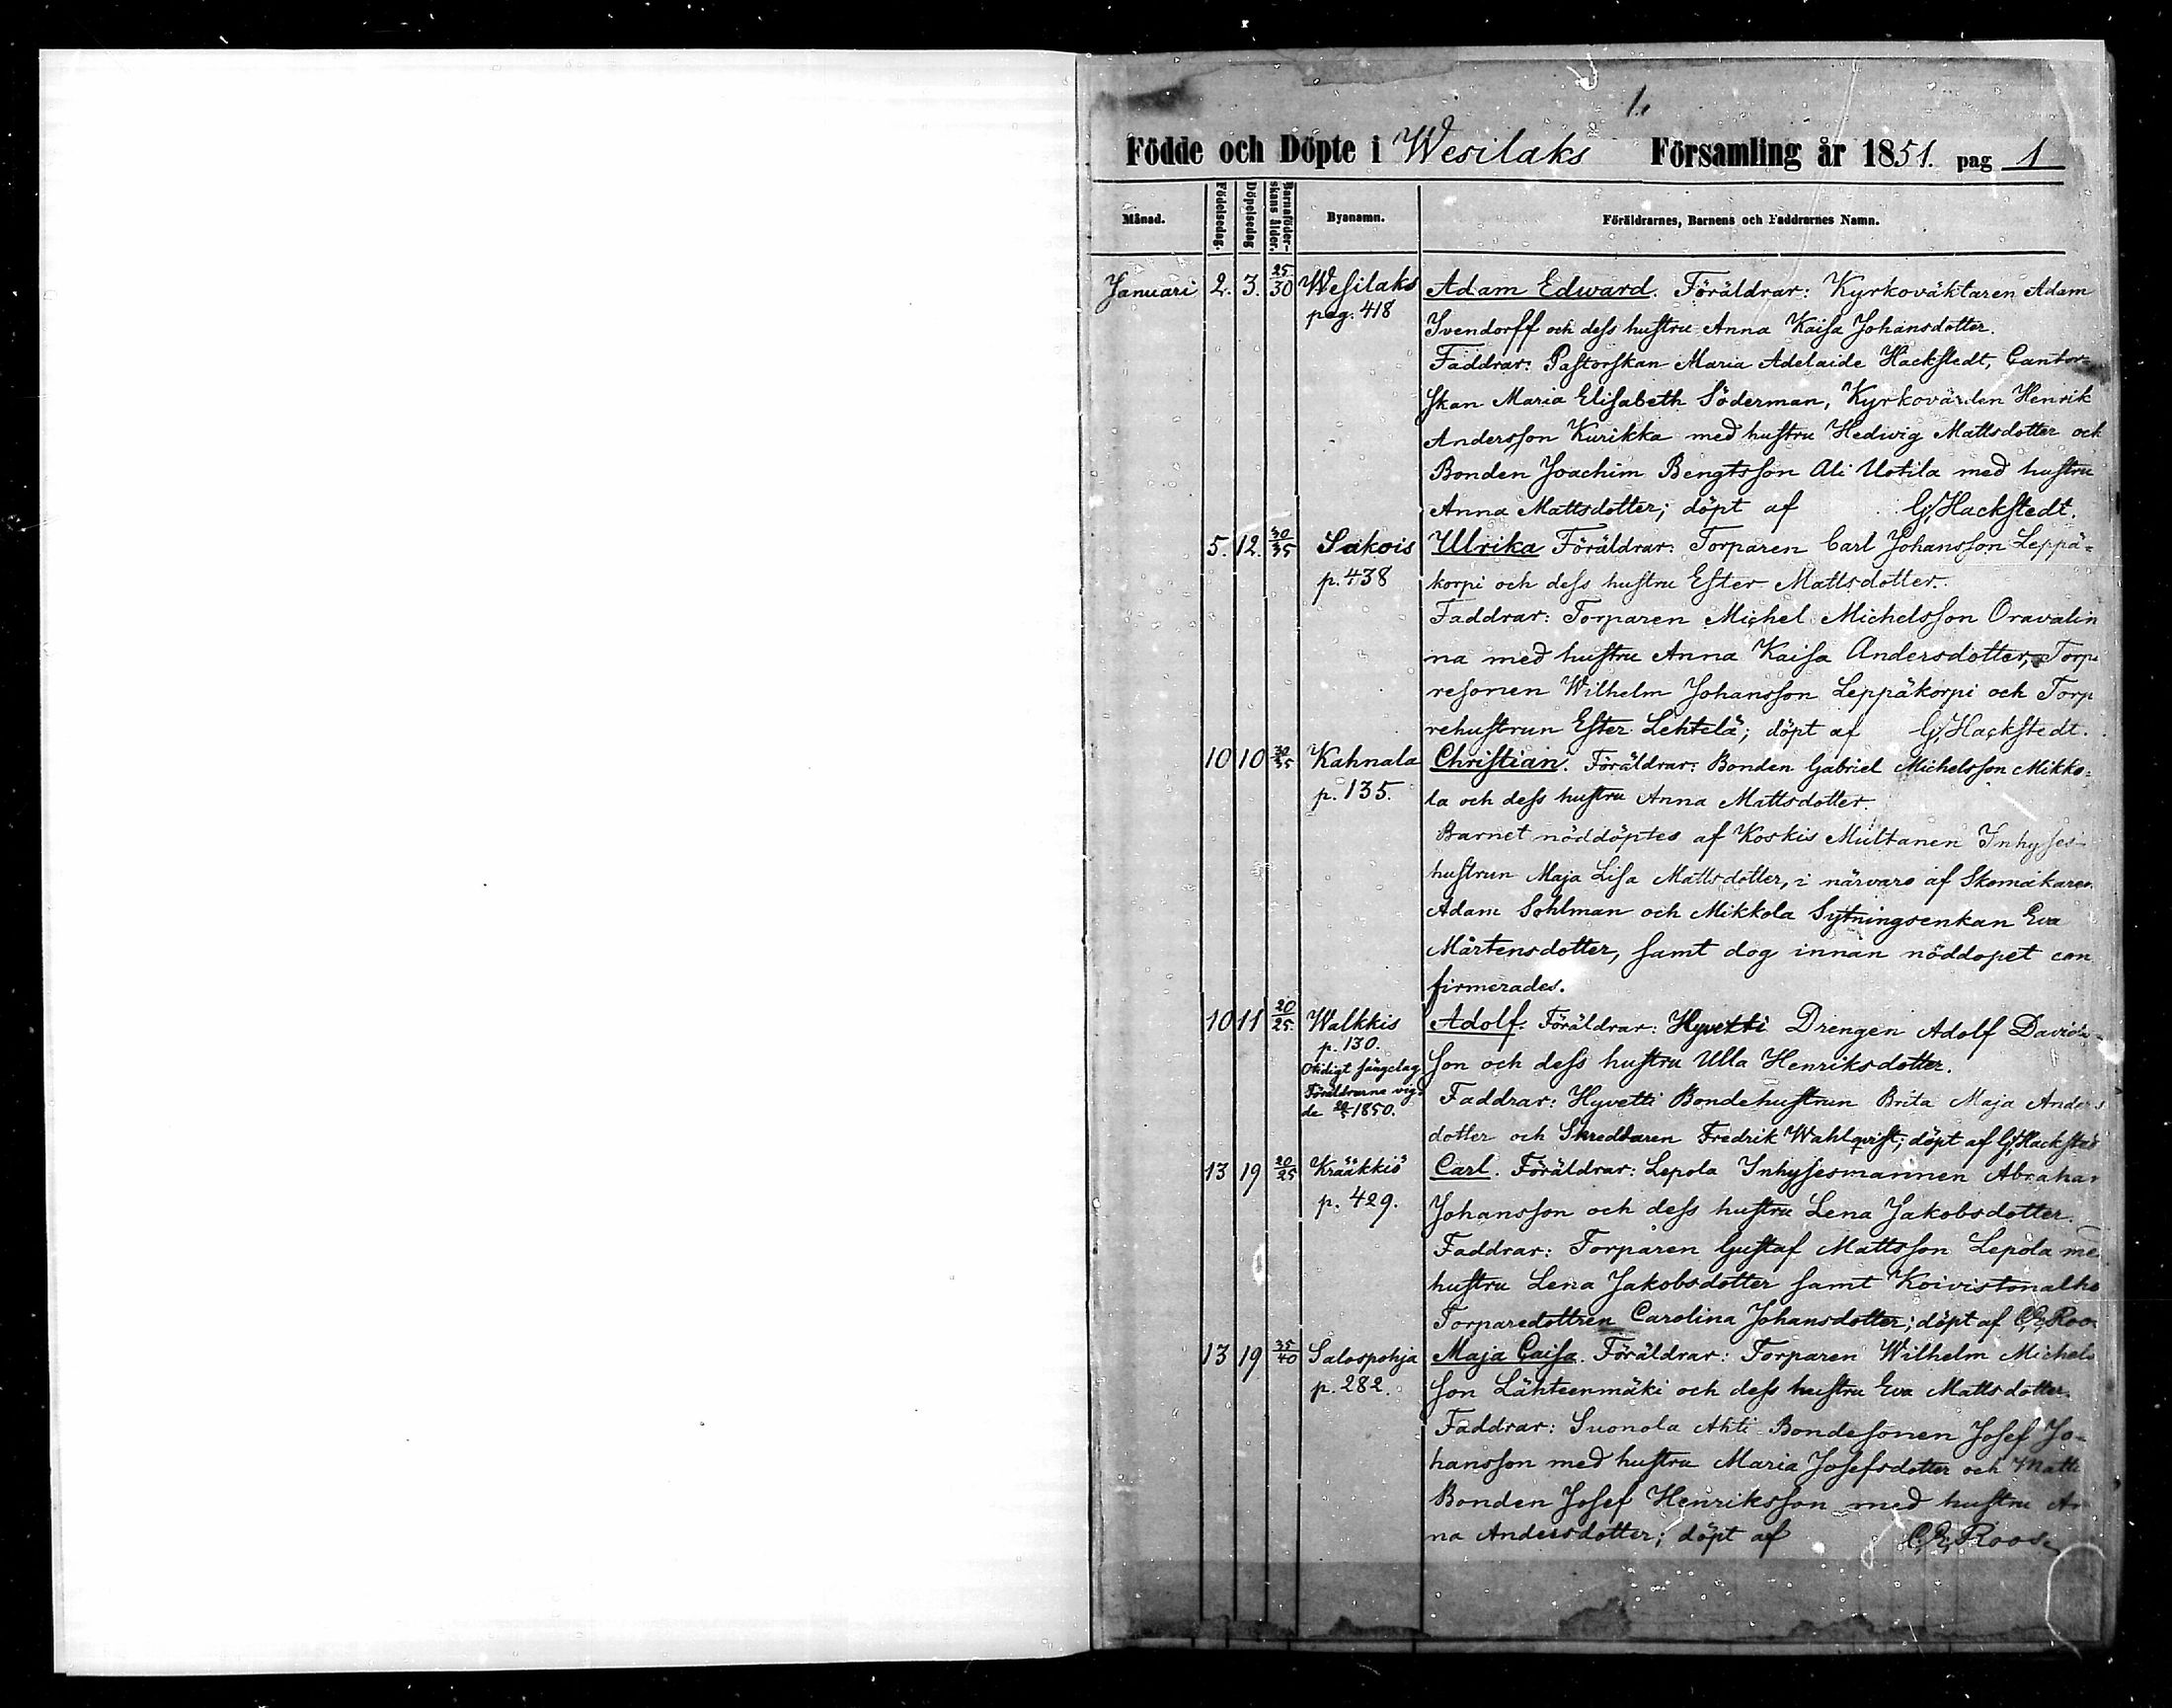 1.
Födde och Döpte i Wesilaks Församling år 1851. pag 1
Månad. Födelsedag. Döpelsedag Barnaföder-skans ålder. Bysnamn. Föräldrarnes, Barnens och Faddrarnes Namn.
Januari 2. 3. 25/30 Wesilaks Adam Edward. Föräldrar: Kyrkoväktaren Adam
pag. 418 Svendorff och dess hustru Anna Kaisa Johansdotter.
Faddrar: Pastorskan Maria Adelaide Hackstedt, Cantor-
skan Maria Elisabeth Söderman, Kyrkovärden Henrik
Andersson Kurikka med hustru Hedwig Mattsdotter och
Bonden Joachim Bengtsson Ali Uotila med hustru
Anna Mattsdotter; döpt af G. Hackstedt.
5. 12. 30/35 Sakois Ulrika Föräldrar: Torparen Carl Johansson Leppä=
p. 438 korpi och dess hustru Ester Mattsdotter.
Faddrar: Torparen Michel Michelsson Oravalin
na med hustru Anna Kaisa Andersdotter, Torpa
resonen Wilhelm Johansson Leppäkorpi och Torp
rehustrun Ester Lehtelä; döpt af G. Hackstedt.
10 10 30/35 Kahnala Christian. Föräldrar: Bonden Gabriel Michelsson Mikko=
p. 135. la och dess hustru Anna Mattsdotter.
Barnet nöddöptes af Koskis Multanen Inhyses-
hustrun Maja Lisa Mattsdotter, i närvaro af Skomakaren
Adam Sohlman och Mikkola Sytningsenkan Eva
Mårtensdotter, samt dog innan nöddopet con
firmerades.
10 11 20/25. Walkkis Adolf. Föräldrar: Hyvetti Drengen Adolf Davids-
p. 130.
Otidigt sängelag son och dess hustru Ulla Henriksdotter.
Föräldrarna vig-
de 1850. Faddrar: Hyvetti Bondehustrun Brita Maja Anders
dotter och Skreddaren Fredrik Wahlqvist; döpt af G. Hacksted
13 19 20/25 Krääkkiö Carl. Föräldrar: Lepola Inhysesmannen Abraham
p. 429. Johansson och dess hustru Lena Jakobsdotter.
Faddrar: Torparen Gustaf Mattsson Lepola me
hustru Lena Jakobsdotter samt Koivistonalho
Torparedottren Carolina Johansdotter; döpt af C. E. Roos
13 19 35/40 Salospohja Maja Caisa. Föräldrar: Torparen Wilhelm Michels
p. 282. son Lähteenmäki och dess hustru Eva Mattsdotter.
Faddrar: Suonola Ahti Bondesonen Josef Jo-
hansson med hustru Maria Josefsdotter och Matti
Bonden Josef Henriksson med hustru An
na Andersdotter; döpt af C. E. Roos.